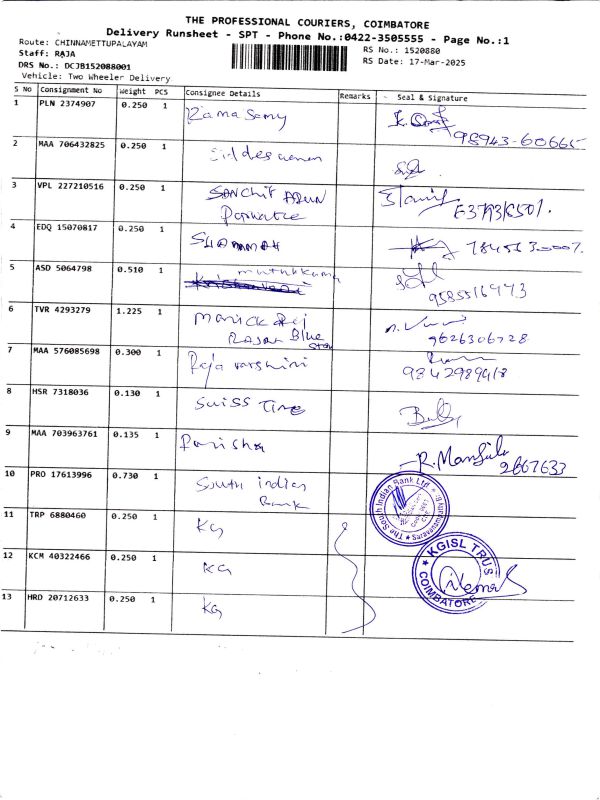 THE PROFESSIONAL COURIERS, COIMBATORE
Delivery Runsheet - SPT - Phone No.:0422-3505555 - Page No.:1
Route: CHINNAMETTUPALAYAM
RS No.: 1520880
Staff: RAJA
RS Date: 17-Mar-2025
DRS No.: DCJB152088001
Vehicle: Two Wheeler Delivery
S No Consignment No Weight PCS Consignee Details Remarks Seal & Signature
1 PLN 2374907 0.250 1 Rama Samy
98943-60665
2 MAA 706432825 0.250 1
3 VPL 227210516 0.250 1 SANCHIT ARUN
4 EDQ 15070817 0.250 1
5 ASD 5064798 0.510 1 muthukkumar
9585516473
6 TVR 4293279 1.225 1 Manick Raj
RAJAN Blue Star
9626306728
7 MAA 576085698 0.300 1 Raja varshini
9842989918
8 HSR 7318036 0.130 1 SWISS Time
9 MAA 703963761 0.135 1 Panisha
R. Manjula
2667633
10 PRO 17613996 0.730 1 South indian
Bank
The South Indian Bank Ltd.
11 TRP 6880460 0.250 1 KG
12 KCM 40322466 0.250 1 KG
KGISL TRUST
COIMBATORE
13 HRD 20712633 0.250 1 KG